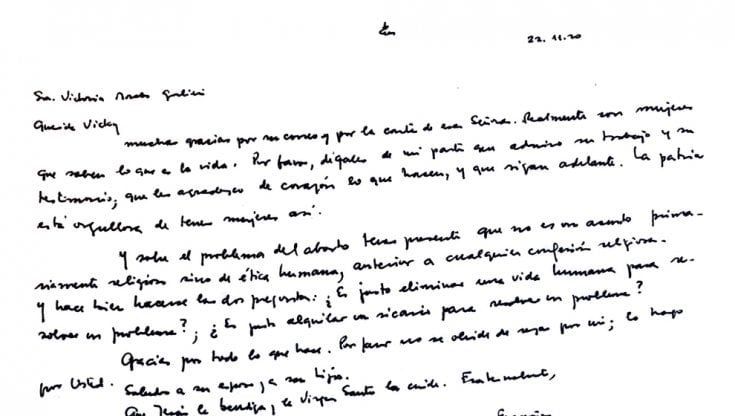 22.11.20
Sra. Victoria Morales Gorleri
Querida Vicky
muchas gracias por su correo y por la carta de esas Señoras. Realmente son mujeres
que saben lo que es la vida. Por favor, dígales de mi parte que admiro su trabajo y su
testimonio; que les agradezco de corazón lo que hacen, y que sigan adelante. La patria
está orgullosa de tener mujeres así.
Y sobre el problema del aborto tener presente que no es un asunto prima-
riamente religioso sino de ética humana, anterior a cualquier confesión religiosa.
y hace bien hacerse las dos preguntas: ¿Es justo eliminar una vida humana para re-
solver un problema?; ¿Es justo alquilar un sicario para resolver un problema?
Gracias por todo lo que hace. Por favor no se olvide de rezar por mí; lo hago
por Usted. Saludos a su esposo y a sus hijos.
Que Jesús la bendiga y la Virgen Santa la cuide. Fraternalmente,